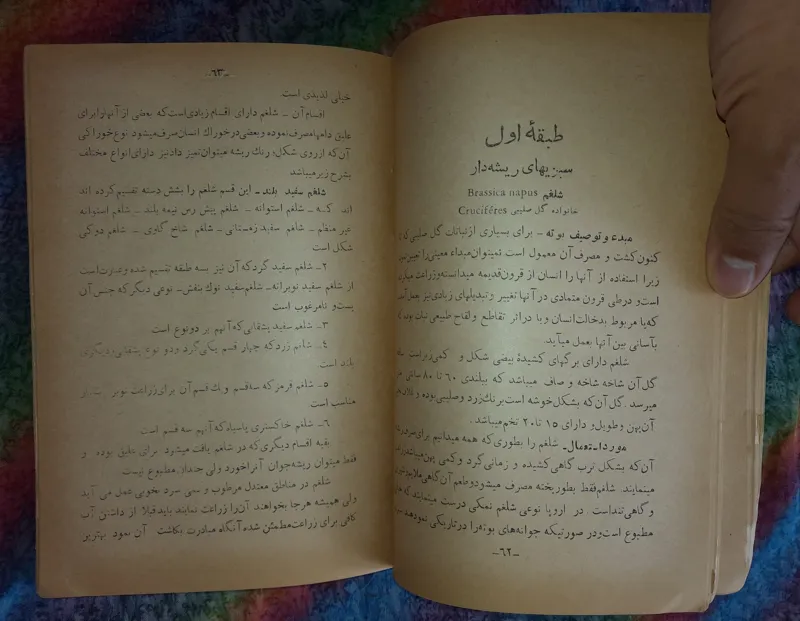 طبقهٔ اول
سبزیهای ریشه‌دار
شلغم Brassica napus
خانواده گل صلیبی Crucifères
مبدء و توصیف بوته – برای بسیاری از نباتات گل صلیبی که تا
کنون کشت و مصرف آن معمول است نمیتوان مبداء معینی را تعیین نمود
زیرا استفاده از آنها را انسان از قرون قدیمه میدانسته و زراعت مینموده
است و در طی قرون متمادی در آنها تغییر و تبدیلهای زیادی نیز بعمل آمده
که یا مربوط بدخالت انسان و یا در اثر تقاطع و لقاح طبیعی نبات بوده که
بآسانی بین آنها بعمل میآید.
شلغم دارای برگهای کشیدهٔ بیضی شکل و کمی زبر است ساقه
گل آن شاخه شاخه و صاف میباشد که ببلندی ۶۰ تا ۸۰ سانتی متر
میرسد. گل آن که بشکل خوشه است برنك زرد و صلیبی بوده و غلاف
آن پهن و طویل و دارای ۱۵ تا ۲۰ تخم میباشد.
مورد استعمال – شلغم را بطوری که همه میدانیم برای
آن که بشکل ترب گاهی کشیده و زمانی گرد و کمی پهن میباشد زراعت
مینمایند. شلغم فقط بطور پخته مصرف میشود و طعم آن گاهی ملایم و شیرین
و گاهی تند است. در اروپا نوعی شلغم نمکی درست مینمایند که
مطبوع است و در صورتیکه جوانه‌های بوته را در تاریکی نمو دهند
–۶۲–
–۶۳–
خیلی لذیذی است.
اقسام آن – شلغم دارای اقسام زیادی است که بعضی از آنها را برای
علیق دامها مصرف نموده و بعضی در خوراك انسان صرف میشود نوع خوراکی
آن که از روی شکل، رنك ریشه میتوان تمیز داد نیز دارای انواع مختلف
بشرح زیر میباشد
شلغم سفید بلند – این قسم شلغم را بشش دسته تقسیم کرده اند
اند که – شلغم استوانه – شلغم پیش رس نیمه بلند – شلغم استوانه
غیر منظم – شلغم سفید زمستانی – شلغم شاخ گاوی – شلغم دوکی
شکل است
۲– شلغم سفید گرد که آن نیز بسه طبقه تقسیم شده و عبارت است
از شلغم سفید نوبرانه – شلغم سفید نوك بنفش – نوعی دیگر که جنس آن
پست و نامرغوب است
۳– شلغم سفید پشقابی که آنهم بر دو نوع است
۴– شلغم زرد که چهار قسم یکی گرد و دو نوع پشقابی و دیگری
بلند است
۵– شلغم قرمز که سه قسم و یك قسم آن برای زراعت نوبر بسیار
مناسب است
۶– شلغم خاکستری یا سیاه که آنهم سه قسم است
بقیه اقسام دیگری که در شلغم یافت میشود برای علیق بوده و
فقط میتوان ریشه جوان آنرا خورد ولی چندان مطبوع نیست
شلغم در مناطق معتدل مرطوب و سی سرد بخوبی عمل می آید
ولی همیشه هر جا بخواهند آن را زراعت نمایند باید قبلا از داشتن آب
کافی برای زراعت مطمئن شده آنگاه مبادرت بکاشت آن نمود بهترین